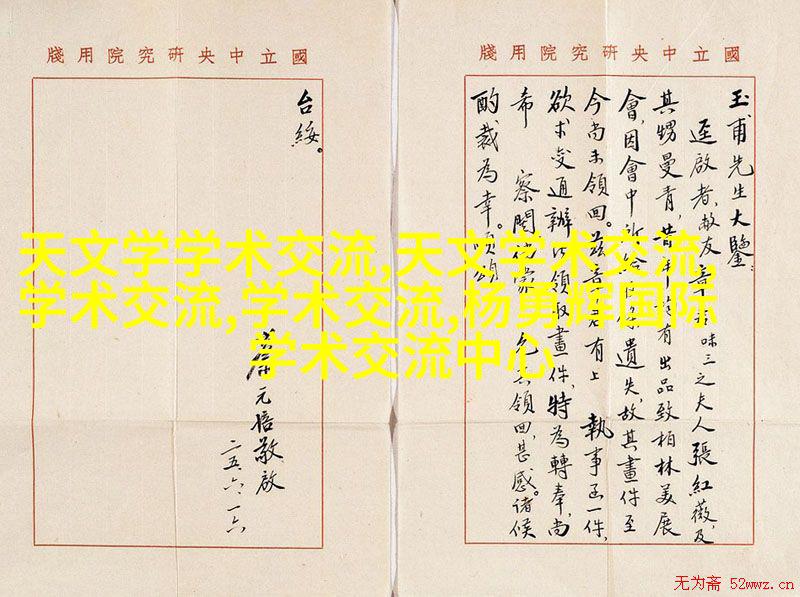 國立中央研究院用牋
玉甫先生大鑒:
逕啟者,敝友章 味三之夫人張紅薇,及
其甥曼青,昔 有出品致柏林美展
會,因會中所給 遺失,故其畫件至
今尚未領回。茲章君有上 執事函一件,
欲求變通辦法領取畫件,特為轉奉,尚
希 察閱 領回,甚感。諸候
酌裁為幸。順頌
國立中央研究院用牋
台綏。
蔡元培敬啟
二五、六、一六
天文学学术交流,天文学术交流,
学术交流,学术交流,杨勇辉国际
学术交流中心
无为斋 52wwz.cn